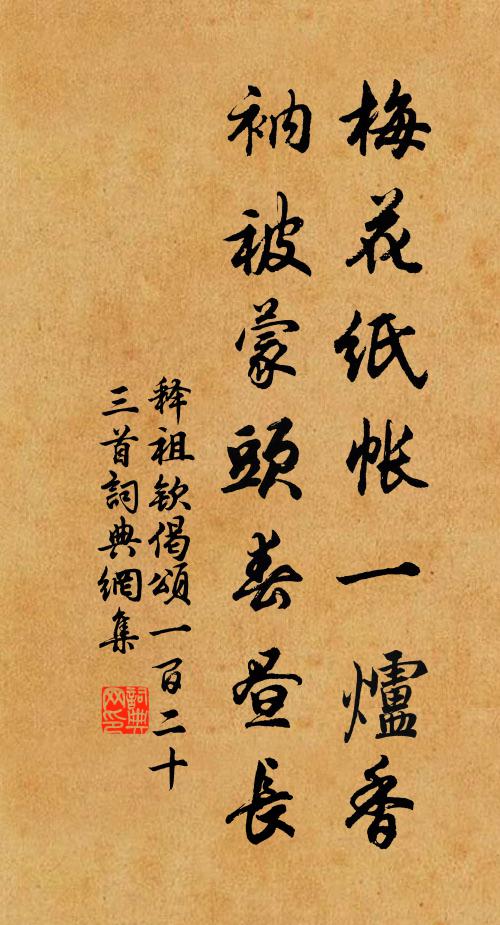 梅花紙帳一爐香
衲被蒙頭春昼長
释祖钦偈頌一百二十
三首詞典網集
詞典
网印